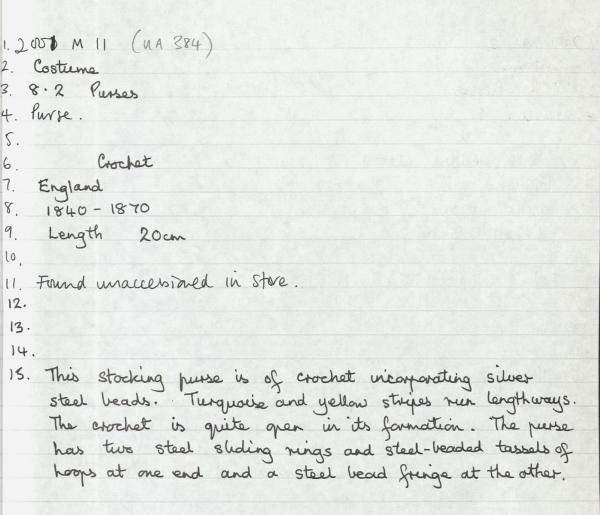 1. 2001 M 11 (UA 384)
2. Costume
3. 8.2 Purses
4. Purse.
5.
6. Crochet
7. England
8. 1840 - 1870
9. Length 20cm
10.
11. Found unaccessioned in store.
12.
13.
14.
15. This stocking purse is of crochet incorporating silver
steel beads. Turquoise and yellow stripes run lengthways.
The crochet is quite open in its formation. The purse
has two steel sliding rings and steel-beaded tassels of
hoops at one end and a steel bead fringe at the other.